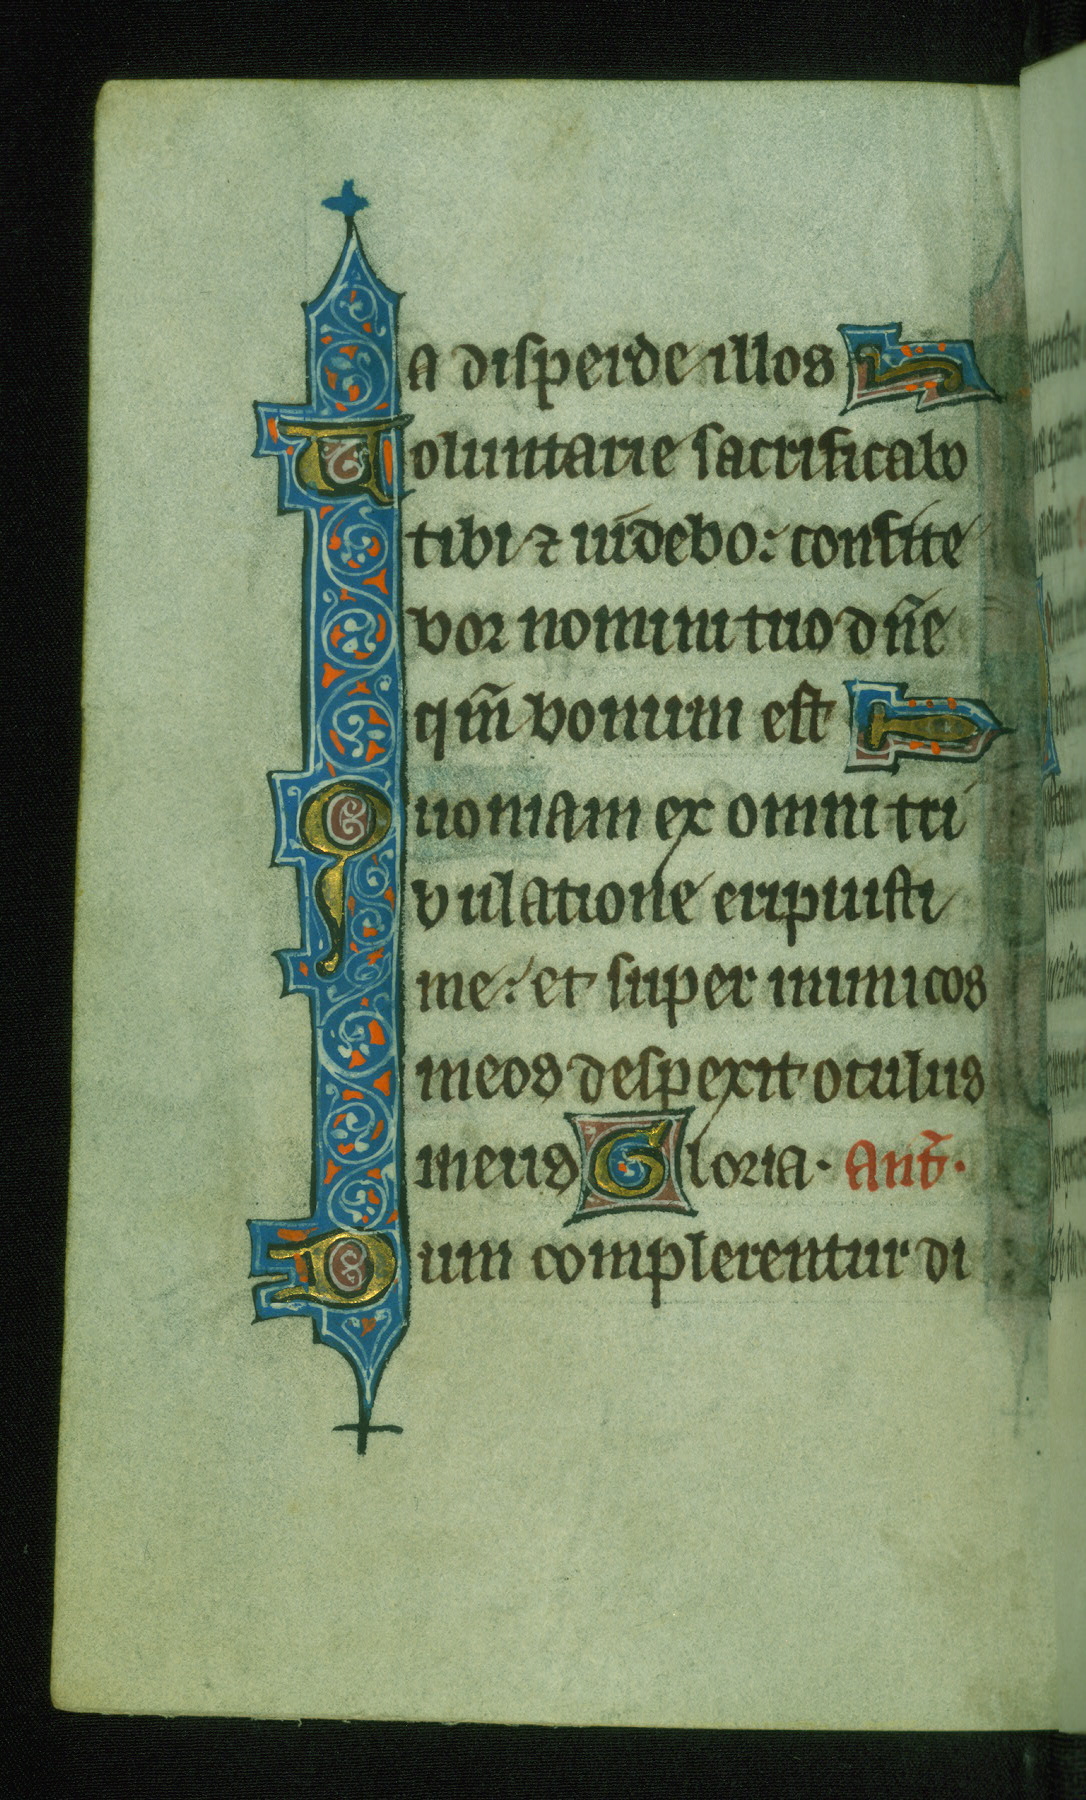 a disperde illos
Voluntarie sacrificabo
tibi ⁊ iūdebo: confite
bor nomini tuo dn̄e
qm̄ bonum est
Quoniam ex omni tri
bulatione eripuisti
me: et super inimicos
meos despexit oculus
meus Gloria. ant̄.
Dum complerentur di